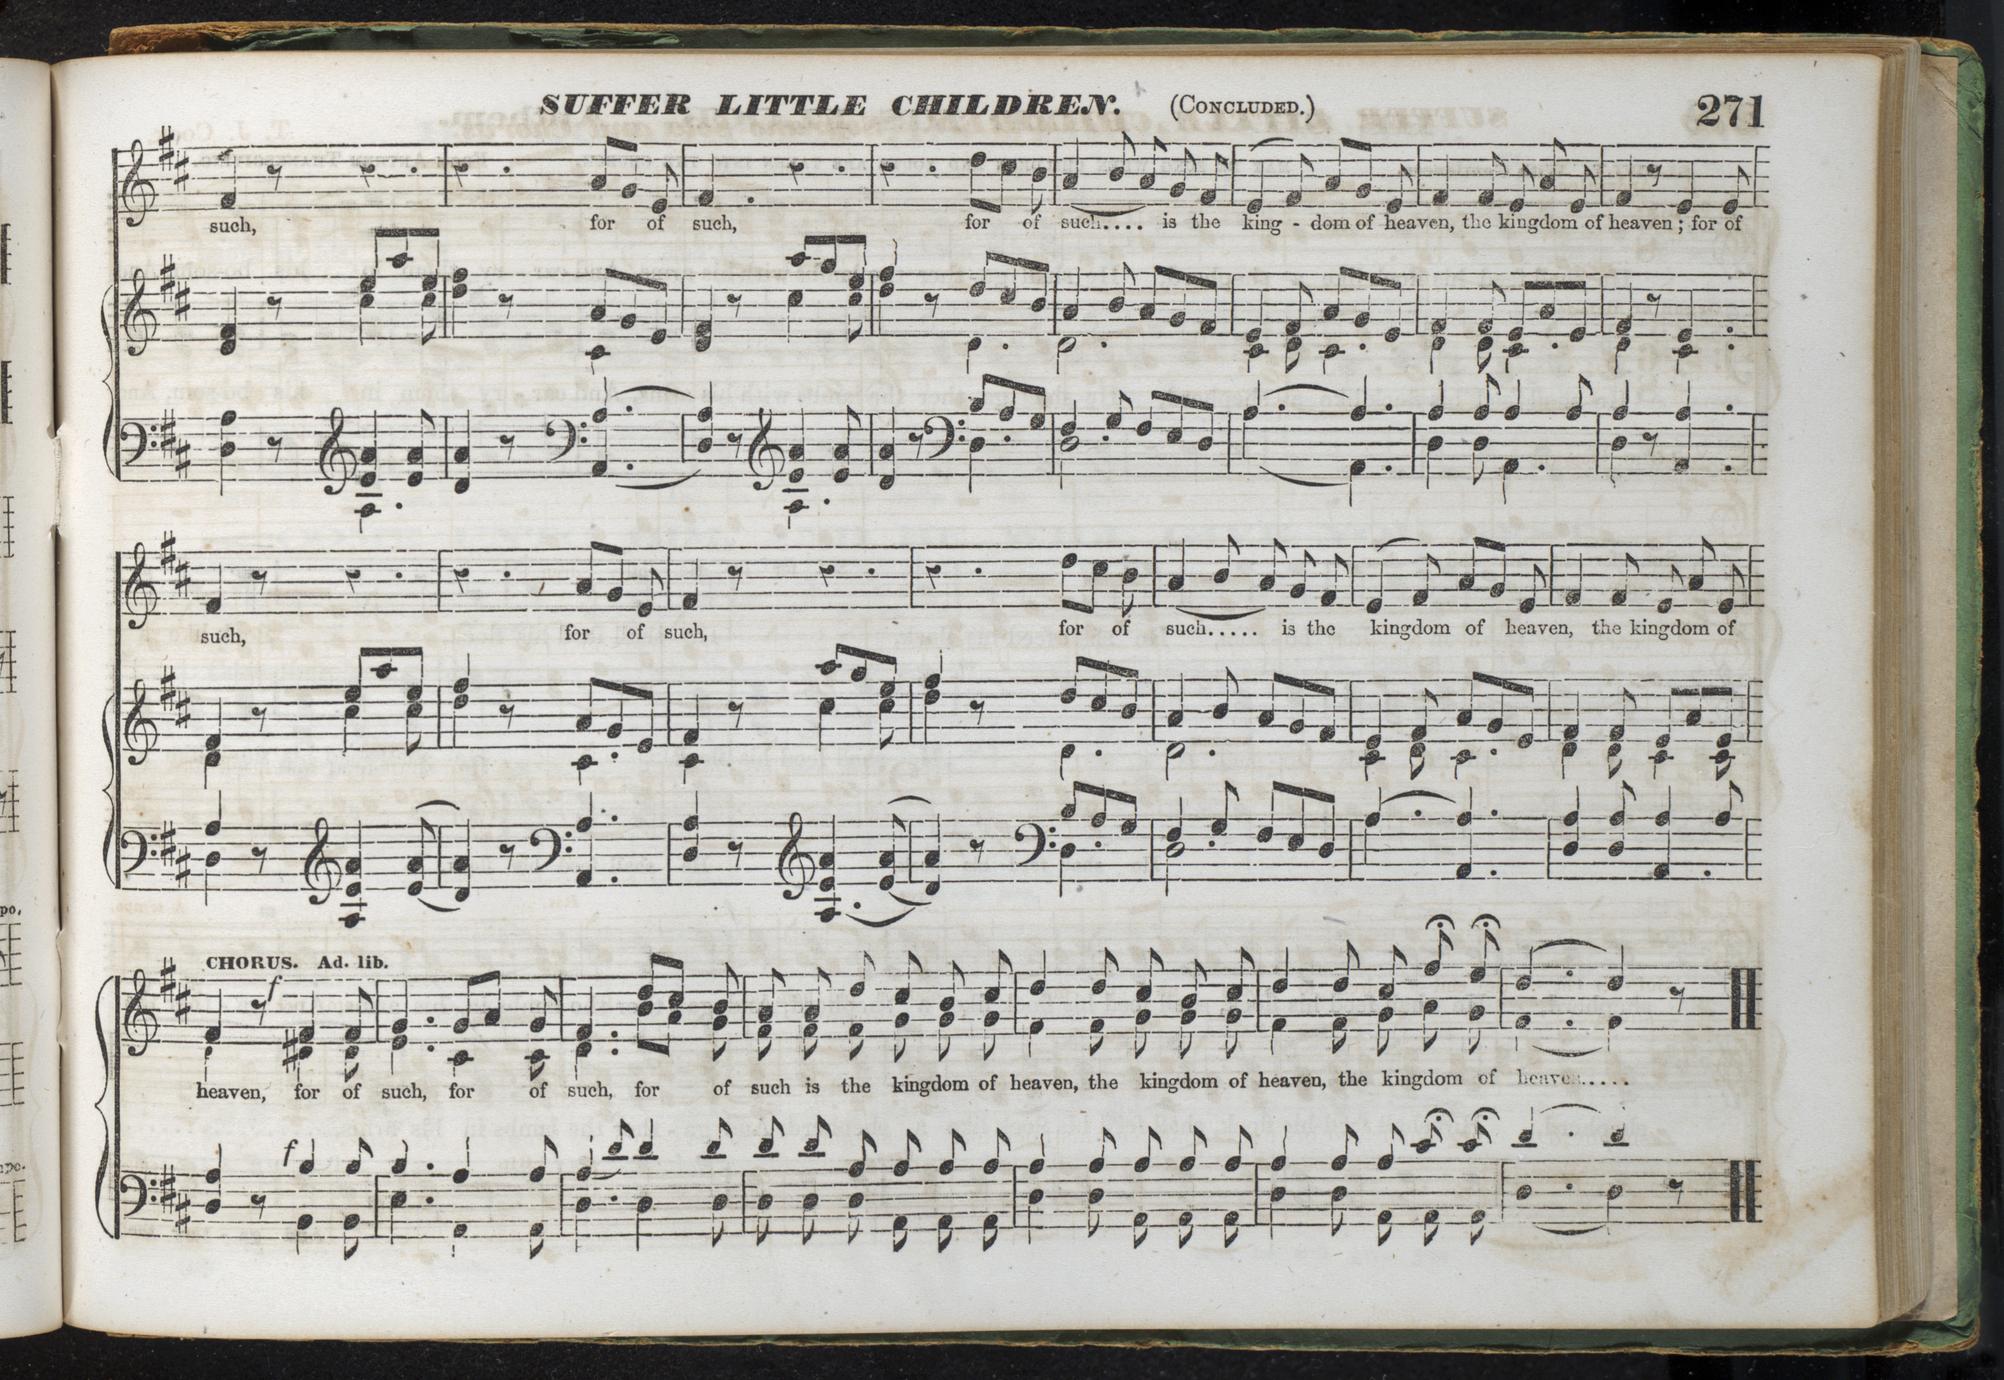 SUFFER LITTLE CHILDREN. (CONCLUDED.) 271
such, for of such, for of such.... is the king - dom of heaven, the kingdom of heaven; for of
such, for of such, for of such..... is the kingdom of heaven, the kingdom of
po,
CHORUS. Ad. lib.
f
heaven, for of such, for of such, for of such is the kingdom of heaven, the kingdom of heaven, the kingdom of heaven.....
f
npo.